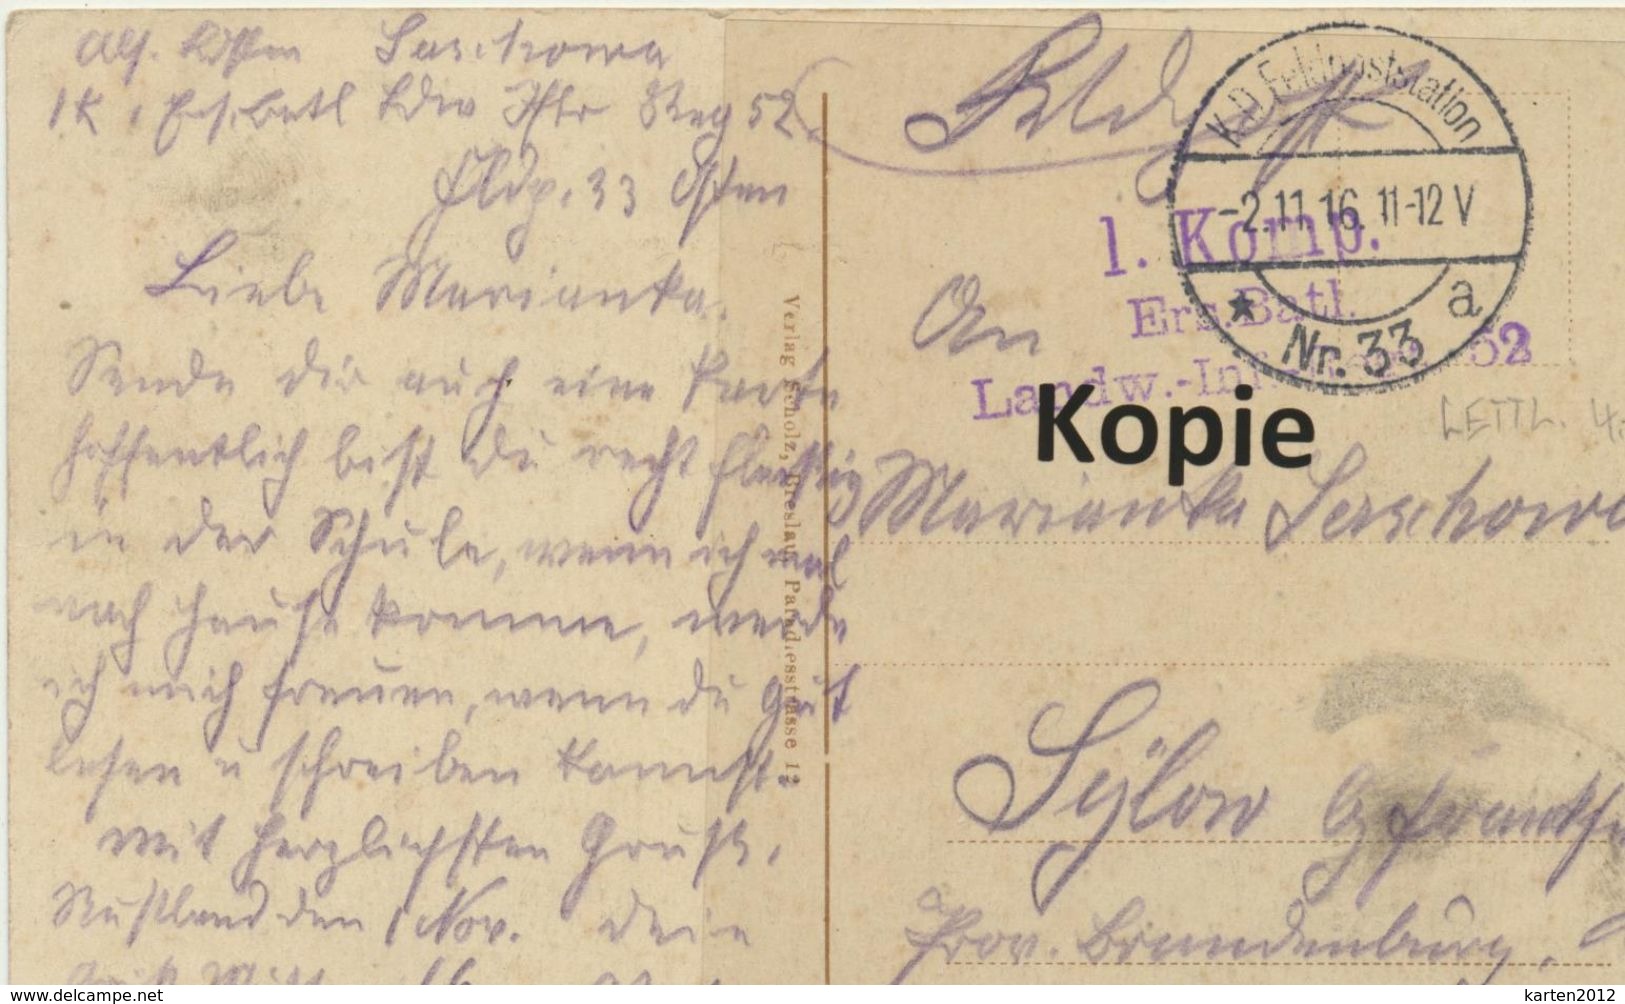 Abs. Wssm Saschowa
1 K 1 Ers. Batl Ldw Iftr Reg 52.
Fldp. 33 Osten
Liebe Marianka.
Sende dir auch eine Karte
hoffentlich bist du recht fleißig
in der Schule, wenn ich mal
nach Hause komme, werde
ich mich freuen, wenn du gut
lesen u schreiben kannst.
Mit herzlichsten Gruß,
Rußland den 1 Nov. dein
16
Verlag Scholz, Breslau, Paradiesstrasse 12
Feldpost
K.D. Feldpoststation
-2.11.16. 11-12 V
a
Nr. 33
1. Komp.
Ers. Batl.
Landw.-Inf. 52
An
Kopie
LETTL.
Marianka
Sÿlow
Prov. Brandenburg.
https://www.delcampe.net
karten2012